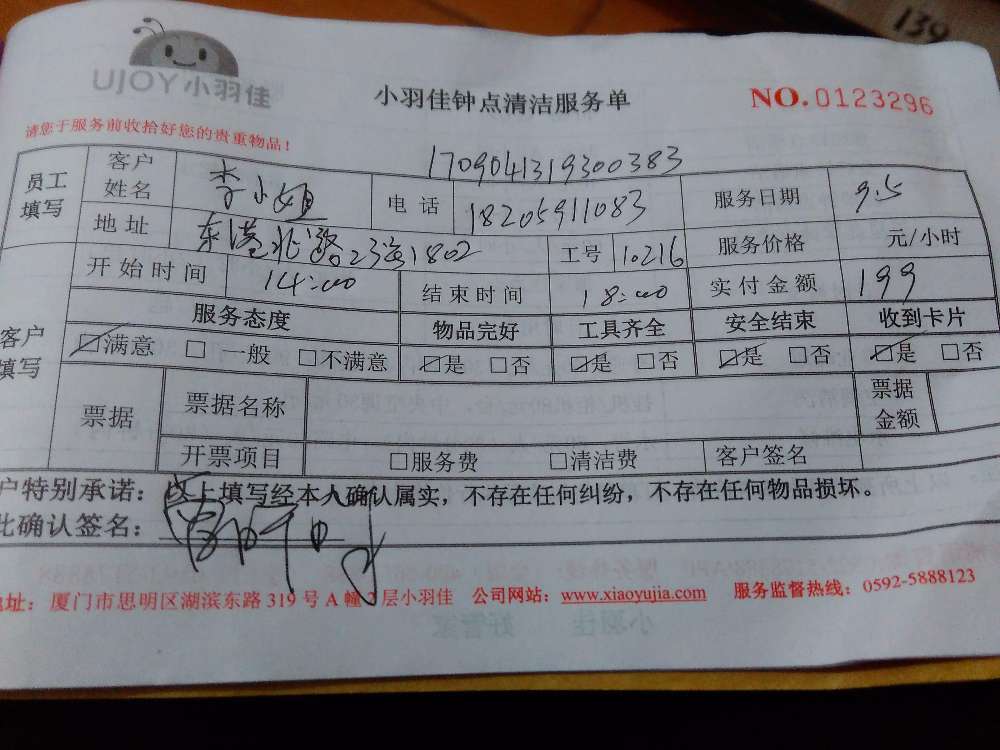 139
UJOY小羽佳
小羽佳钟点清洁服务单
NO.0123296
请您于服务前收拾好您的贵重物品！
1709041319300383
员工填写 客户姓名 李小姐 电话 18205911083 服务日期 9.5
地址 东港北路23号1802 工号 10216 服务价格 元/小时
客户填写 开始时间 14:00 结束时间 18:00 实付金额 199
服务态度 物品完好 工具齐全 安全结束 收到卡片
☑满意 □一般 □不满意 ☑是 □否 ☑是 □否 ☑是 □否 ☑是 □否
票据 票据名称 票据金额
开票项目 □服务费 □清洁费 客户签名
户特别承诺：以上填写经本人确认属实，不存在任何纠纷，不存在任何物品损坏。
此确认签名：
地址：厦门市思明区湖滨东路319号A幢2层小羽佳 公司网站：www.xiaoyujia.com 服务监督热线：0592-5888123